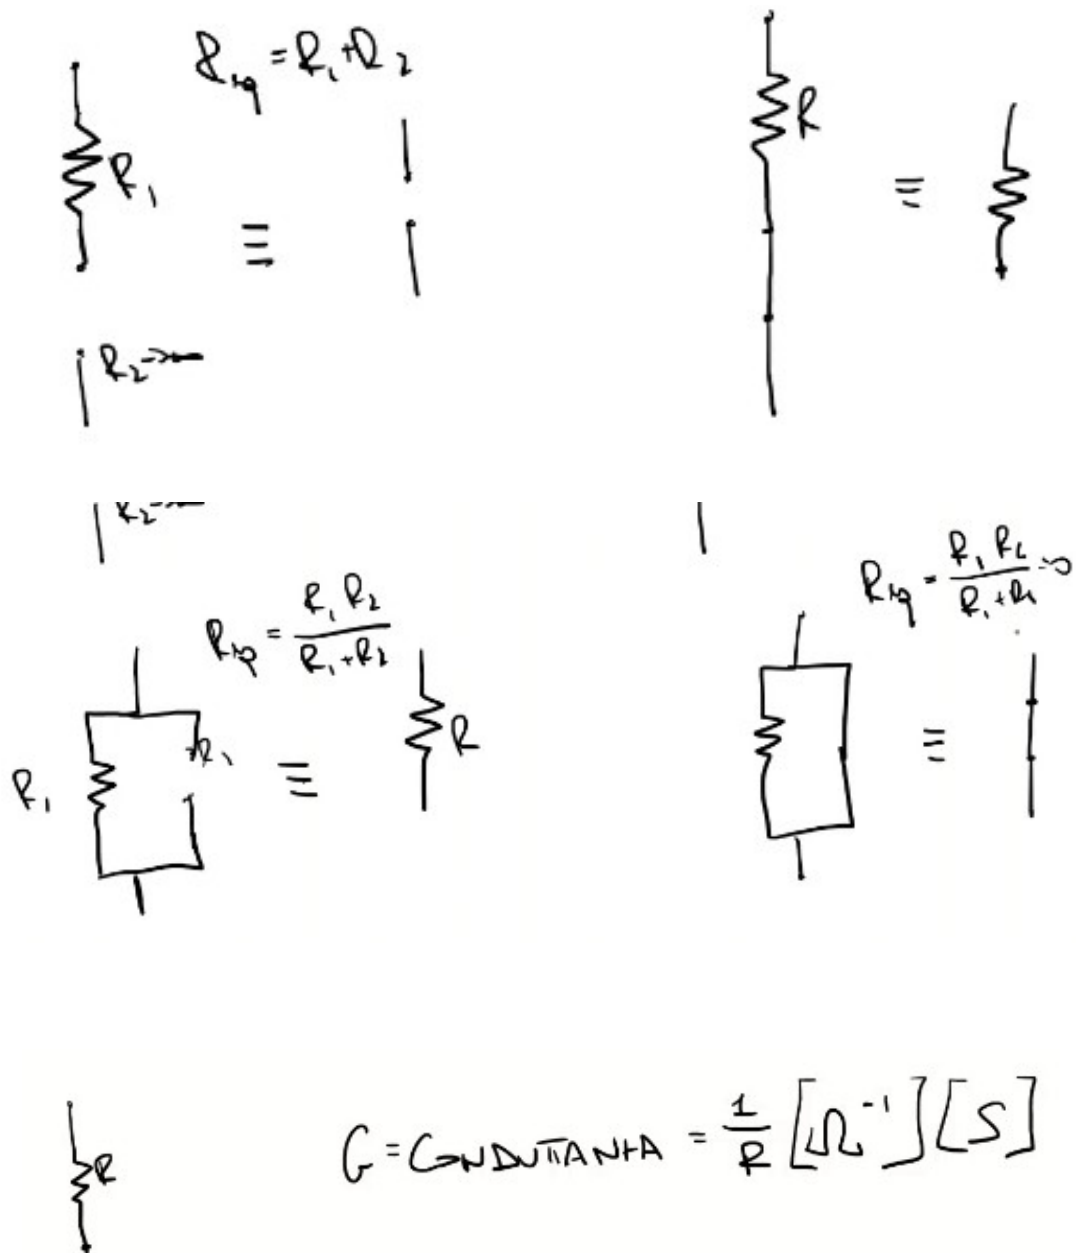 Req = R1 + R2
R1
≡
R2 →∞
R
≡
Req = R1 R2 / R1 + R2
R1
≡
R
Req = R1 R2 / R1 + R2 = 0
≡
R
G = CONDUTTANZA = 1/R [Ω⁻¹] [S]